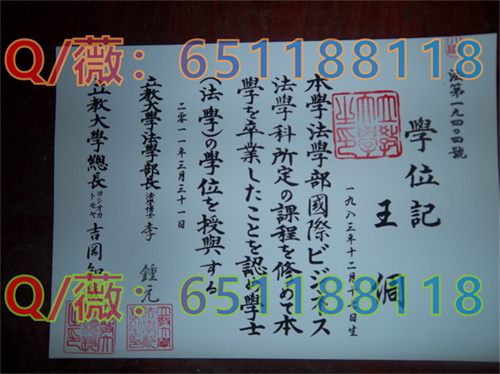 Q/薇：651188118
法第一九四〇四號
學位記
王
一九八三年十二月十七日生
本學法學部國際ビジネス
法學科所定の課程を修めて本
學を卒業したことを認め學士
(法學)の學位を授與する
二〇一一年三月三十一日
立教大學法學部長 法學博士 李 鍾元
立教大學總長 ヨシオカ トモヤ 吉岡知
Q/薇：651188118